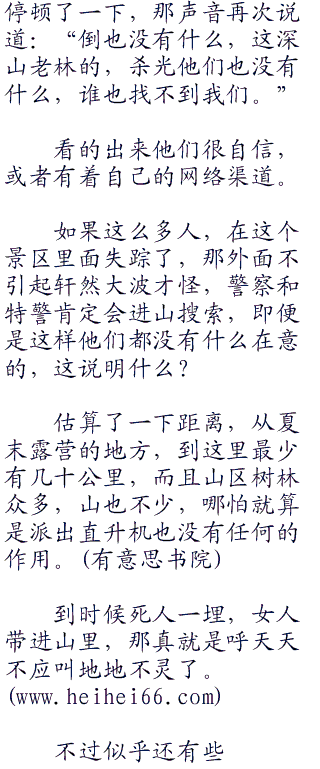 停顿了一下，那声音再次说
道：“倒也没有什么，这深
山老林的，杀光他们也没有
什么，谁也找不到我们。”
看的出来他们很自信，
或者有着自己的网络渠道。
如果这么多人，在这个
景区里面失踪了，那外面不
引起轩然大波才怪，警察和
特警肯定会进山搜索，即便
是这样他们都没有什么在意
的，这说明什么？
估算了一下距离，从夏
末露营的地方，到这里最少
有几十公里，而且山区树林
众多，山也不少，哪怕就算
是派出直升机也没有任何的
作用。(有意思书院)
到时候死人一埋，女人
带进山里，那真就是呼天天
不应叫地地不灵了。
(www.heihei66.com)
不过似乎还有些